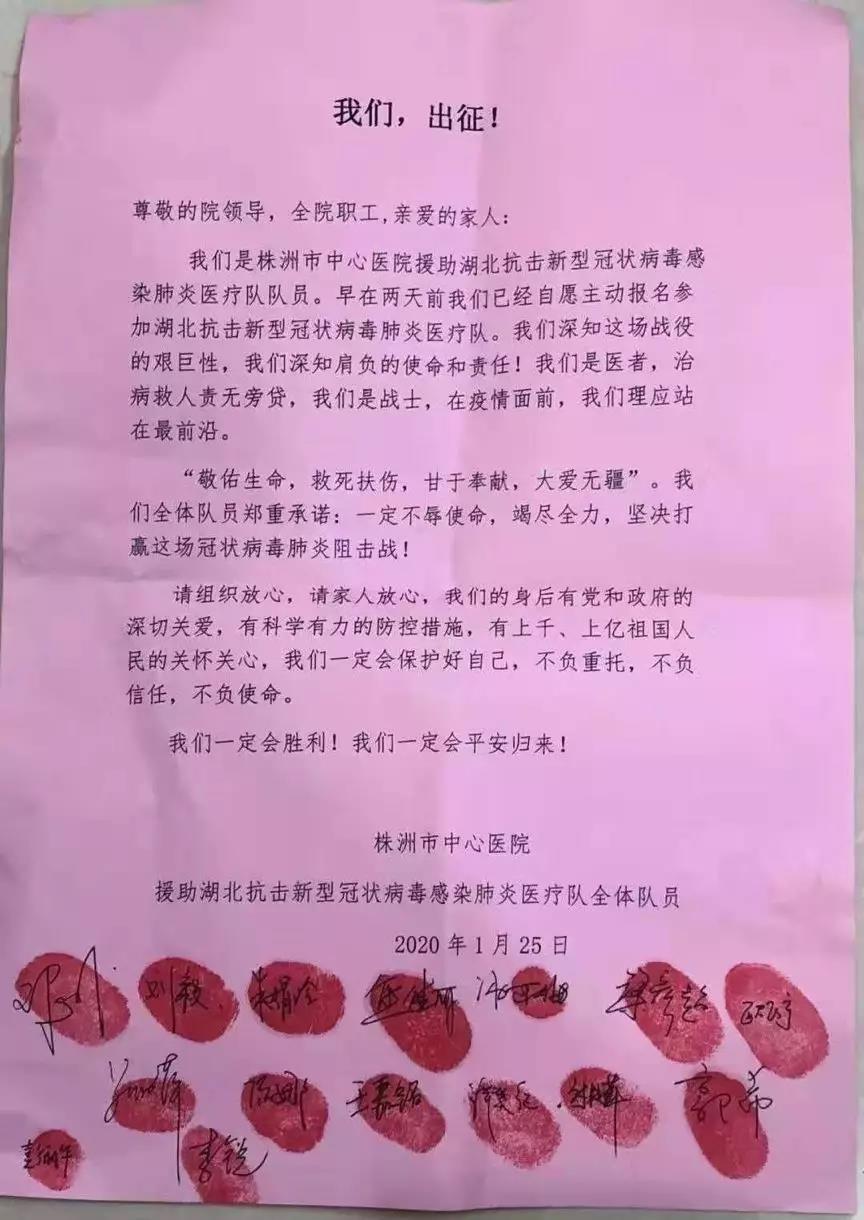 我们，出征！
尊敬的院领导，全院职工,亲爱的家人：
我们是株洲市中心医院援助湖北抗击新型冠状病毒感
染肺炎医疗队队员。早在两天前我们已经自愿主动报名参
加湖北抗击新型冠状病毒肺炎医疗队。我们深知这场战役
的艰巨性，我们深知肩负的使命和责任！我们是医者，治
病救人责无旁贷，我们是战士，在疫情面前，我们理应站
在最前沿。
“敬佑生命，救死扶伤，甘于奉献，大爱无疆”。我
们全体队员郑重承诺：一定不辱使命，竭尽全力，坚决打
赢这场冠状病毒肺炎阻击战！
请组织放心，请家人放心，我们的身后有党和政府的
深切关爱，有科学有力的防控措施，有上千、上亿祖国人
民的关怀关心，我们一定会保护好自己，不负重托，不负
信任，不负使命。
我们一定会胜利！我们一定会平安归来！
株洲市中心医院
援助湖北抗击新型冠状病毒感染肺炎医疗队全体队员
2020年1月25日
刘毅
李锐